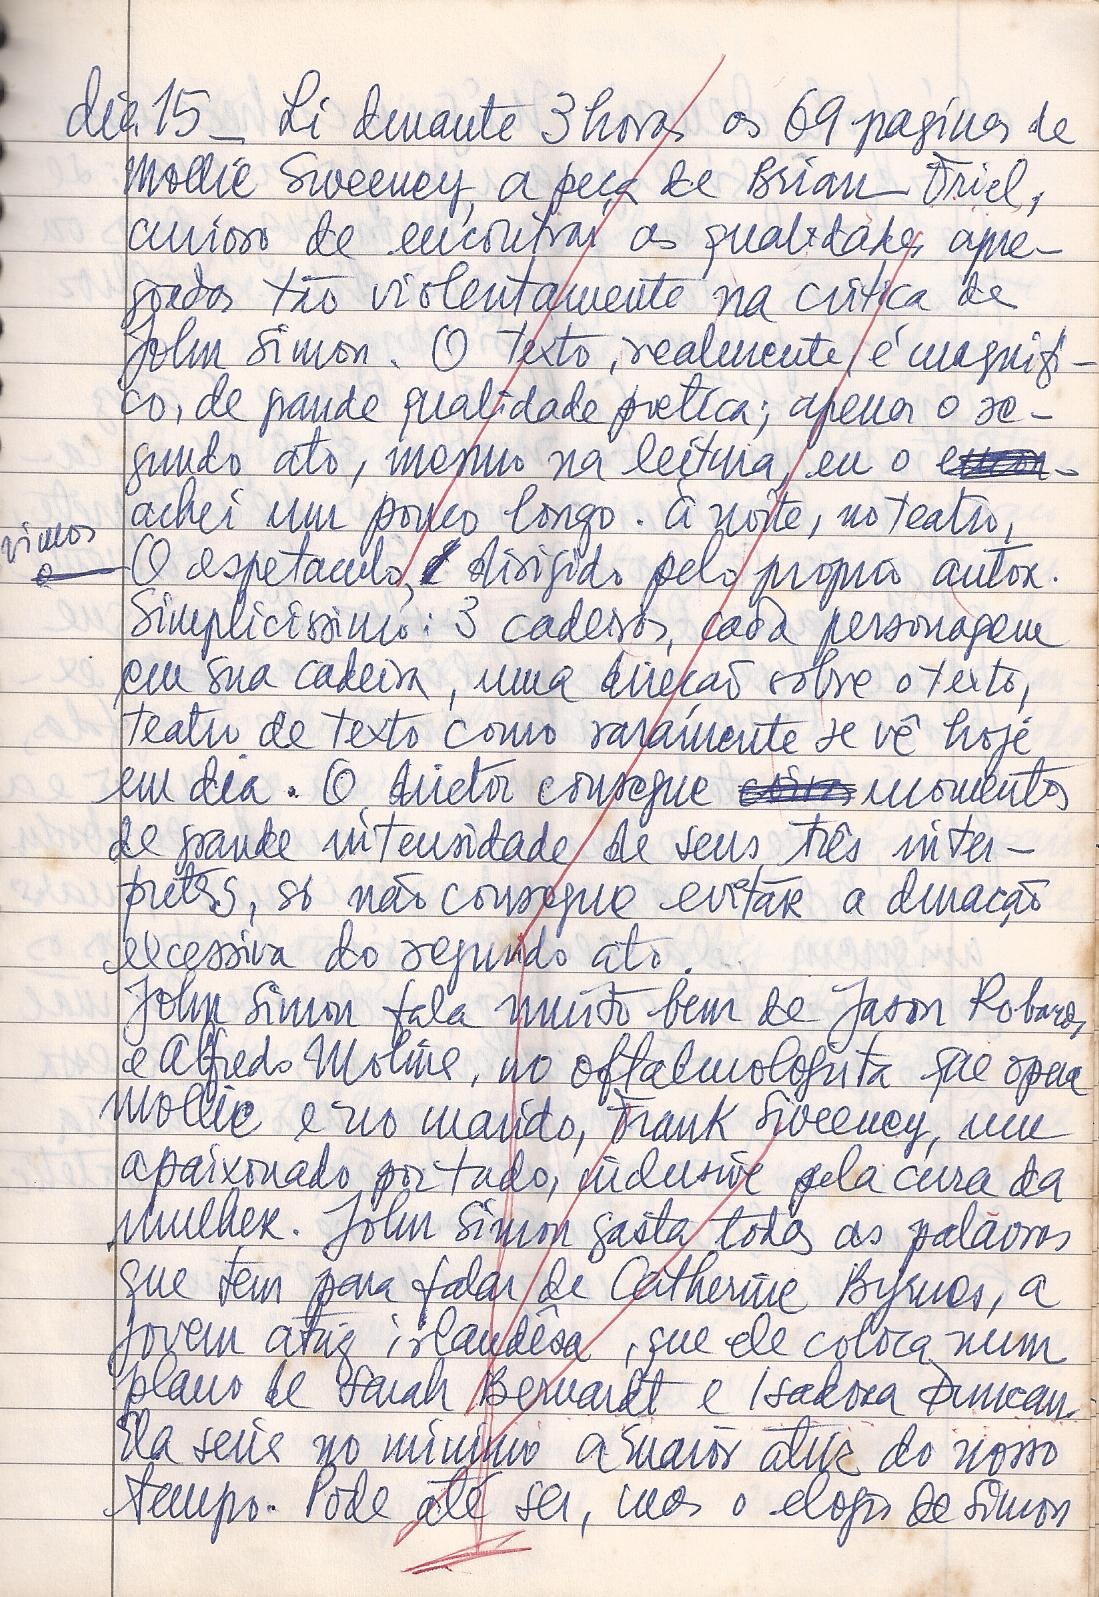 dia 15_ Li durante 3 horas as 69 paginas de
Mollie Sweeney, a peça de Brian Friel,
curioso de encontrar as qualidades apre-
goadas tão violentamente na crítica de
John Simon. O texto, realmente, é magnífi-
co, de grande qualidade poetica; apenas o se-
gundo ato, mesmo na leitura, eu o
achei um pouco longo. À noite, no teatro,
vimos o
O espetaculo, dirigido pelo proprio autor.
Simplicissimo: 3 cadeiras, cada personagem
em sua cadeira, uma direção sobre o texto,
teatro de texto como raramente se vê hoje
em dia. O diretor consegue momentos
de grande intensidade de seus três inter-
pretes, só não consegue evitar a duração
excessiva do segundo ato.
John Simon fala muito bem de Jason Robards,
e Alfredo Moline, no oftalmologista que opera
Mollie e no marido, Frank Sweeney, um
apaixonado por tudo, inclusive pela cura da
mulher. John Simon gasta todas as palavras
que tem para falar de Catherine Byrnes, a
jovem atriz irlandêsa, que ele coloca num
plano de Sarah Bernardt e Isadora Duncan.
Ela seria no minimo a maior atriz do nosso
tempo. Pode até ser, mas o elogio de Simon